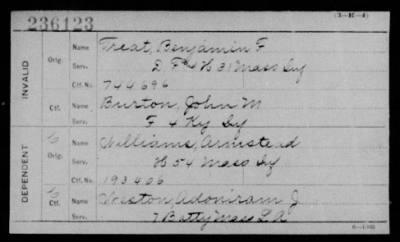 236123
(3-H-4)
INVALID
Orig. Name Treat, Benjamin F
Serv. D F & H 31 Mass Inf
Ctf. No. 744696
Ctf. Name Burton, John M
Serv. F 4 Ky Inf
DEPENDENT
C Orig. Name Williams, Armstead
Serv. H 54 Mass Inf
Ctf. No. 193406
C Ctf. Name Weston, Adoniram J
Serv. 7 Batty Mass L.A